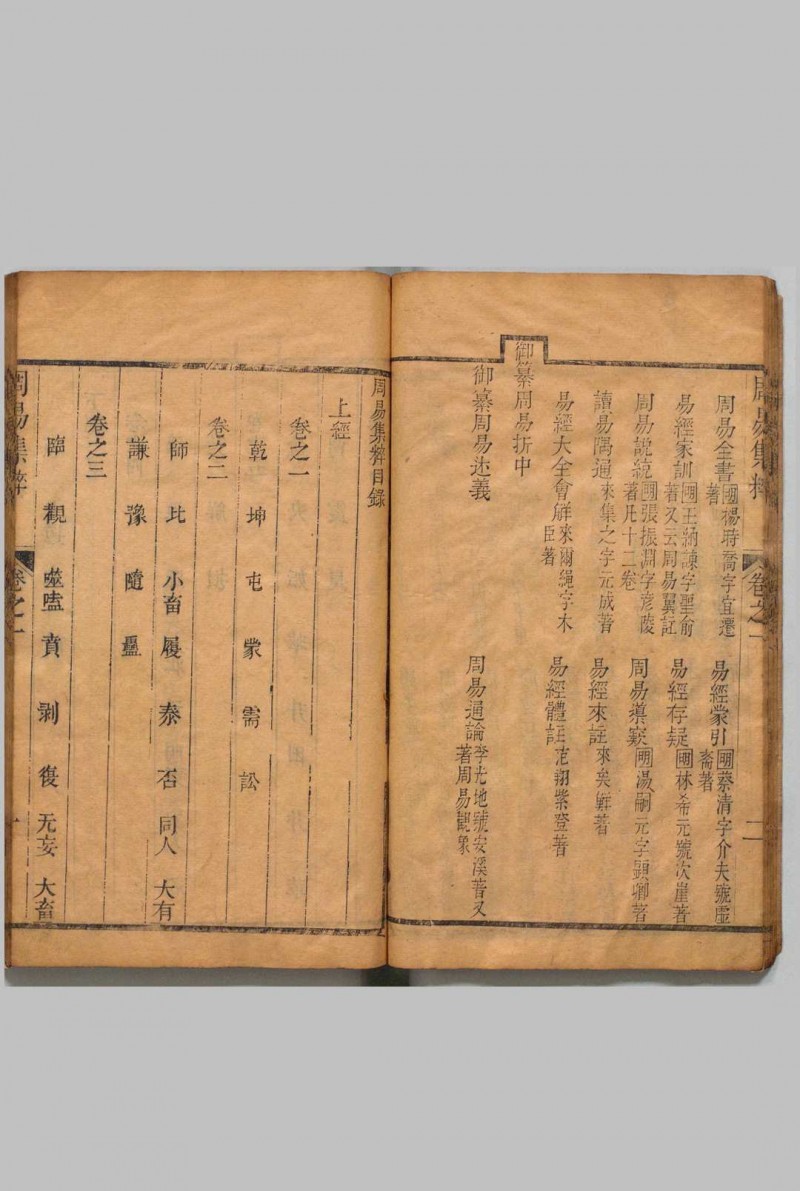 周易集粹 卷之一 二
周易全書 明楊時喬字宜遷著
易經蒙引 明蔡清字介夫號虛齋著
易經家訓 明王納諫字聖俞著又云周易翼註
易經存疑 明林希元號次崖著
周易說統 明張振淵字彥陵著凡十二卷
周易導窾 明湯嗣元字顕卿著
讀易隅通 來集之字元成著
易經來註 來矣鮮著
易經大全會解 來爾繩字木臣著
易經體註 范翔紫登著
御纂周易折中
御纂周易述義
周易通論 李光地號安溪著又著周易觀彖
周易集粹目錄
上經
卷之一
乾 坤 屯 蒙 需 訟
卷之二
師 比 小畜 履 泰 否 同人 大有
謙 豫 隨 蠱
卷之三
臨 觀 噬嗑 賁 剥 復 无妄 大畜
周易集粹 卷之一 一